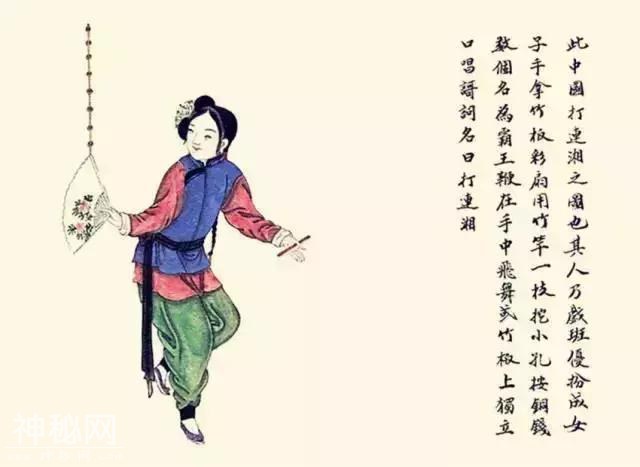 此中國打連湘之圖也其人乃戲班優扮成女
子手拿竹板彩扇用竹竿一枝挖小孔按銅錢
數個名為霸王鞭在手中飛舞或竹板上獨立
口唱謌詞名曰打連湘
神秘网